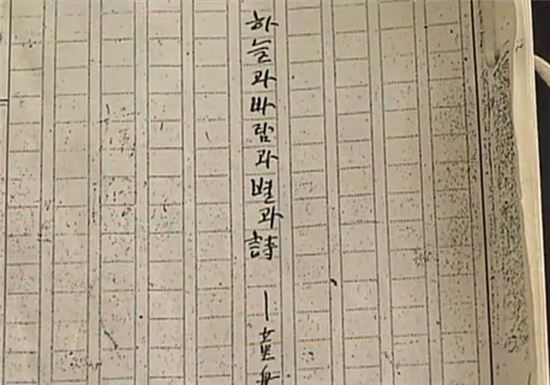 하늘과바람과별과詩 — 童